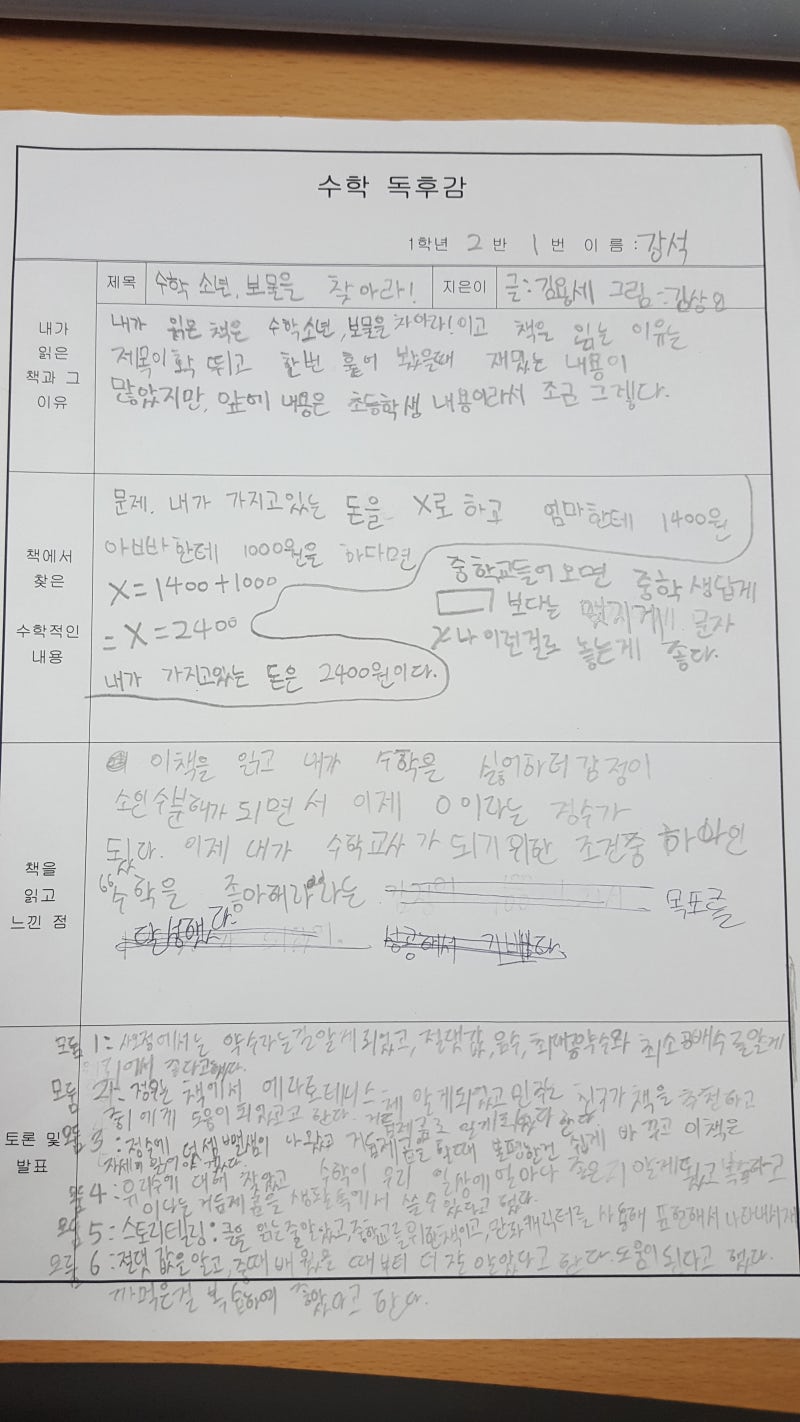 수학 독후감
1학년 2 반 1 번 이 름 : 강석
제목 수학 소년, 보물을 찾아라! 지은이 글:김용세 그림:김상인
내가
읽은
책과 그
이유
내가 읽은 책은 수학소년, 보물을 차아라!이고 책을 읽는 이유는
제목이 확 뛰고 한번 훑어 봤을때 재밌는 내용이
많았지만, 앞에 내용은 초등학생 내용이라서 조금 그렇다.
책에서
찾은
수학적인
내용
문제. 내가 가지고있는 돈을 X로 하고 엄마한테 1400원
아빠한테 1000원을 하다면
X=1400+1000
= X=2400
내가 가지고있는 돈은 2400원이다.
중학교들어오면 중학생답게
보다는 멋지게 글자
x나 이런걸로 놓는게 좋다.
책을
읽고
느낀 점
이책을 읽고 내가 수학을 싫어하더 감정이
소인수분해가 되면서 이제 0이라는 정수가
됬다. 이제 내가 수학교사가 되기위한 조건중 하나인
"수학을 좋아해라"라는 목표를
달성했다.
토론 및
발표
모둠 1: 에서는 약수라는걸알게되었고, 절댓값, 음수, 최대공약수와 최소공배수를알게
되어서 좋다고했다.
모둠 2: 책에서 에라토테니스 알게되었고 친구가 책을 추천하고
에게 도움이 되었고 한다. 거듭제곱로 알게 한다.
모둠 3 : 정수에 덧셈 뺄셈이 나왔고 거듭제곱을 할때 불편할건 쉽게 바꾸고 이책은
자세히
모둠 4: 유리수에 대해 찾았고 수학이 우리 일상에 얼마나 좋은지 알게됬고
거듭제곱을 생활속에서 쓸수있다고 했다.
모둠 5: 스토리텔링: 글을 읽는줄알았고, 중학교를위한책이고, 만화캐릭터를 사용해 표현해서 나타내서
모둠 6 : 절댓값을알고, 배웠을 때부터 더 잘 알았다고 한다. 도움이된다고 했다.
까먹은걸 복습하여 좋았다고 한다.